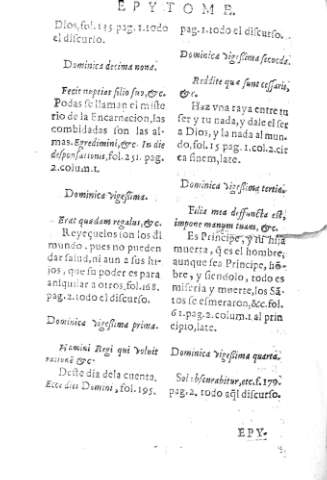 EPYTOME.
Dios, fol. 135 pag. 1. todo
el discurso.
Dominica decima nona.
Fecit nuptias filio suo, &c.
Podas se llaman el miste
rio de la Encarnacion, las
combidadas son las al-
mas. Egredimini, &c. In die
desponsationis, fol. 251. pag.
2. colum. 1.
Dominica vigesima.
Erat quidam regulus, &c.
Reyeçuelos son los dl
mundo. pues no pueden
dar salud, ni aun a sus hi-
jos, que su poder es para
aniquilar a otros, fol. 168.
pag. 2. todo el discurso.
Dominica vigesima prima.
Homini Regi qui voluit
rationē &c.
Deste dia de la cuenta.
Ecce dies Domini, fol. 195.
pag. 1. todo el discurso.
Dominica vigesima secūda.
Reddite quæ sunt cessaris,
&c.
Haz vna raya entre tu
ser y tu nada, y dale el ser
a Dios, y la nada al mun-
do, fol. 15 pag. 1. col. 2. cir
ca finem, late.
Dominica vigesima tertia.
Filia mea deffuncta est,
impone manum tuam, &c.
Es Principe, y su hija
muerta, q̄ es el hombre,
aunque sea Principe, hō-
bre, y siendolo, todo es
miseria y muerte, los Sā-
tos se esmeraron, &c. fol.
61. pag. 2. colum. 1 al prin
cipio, late.
Dominica vigesima quarta.
Sol obscurabitur, etc. f. 179.
pag. 2. todo aq̄l discurso.
EPY-